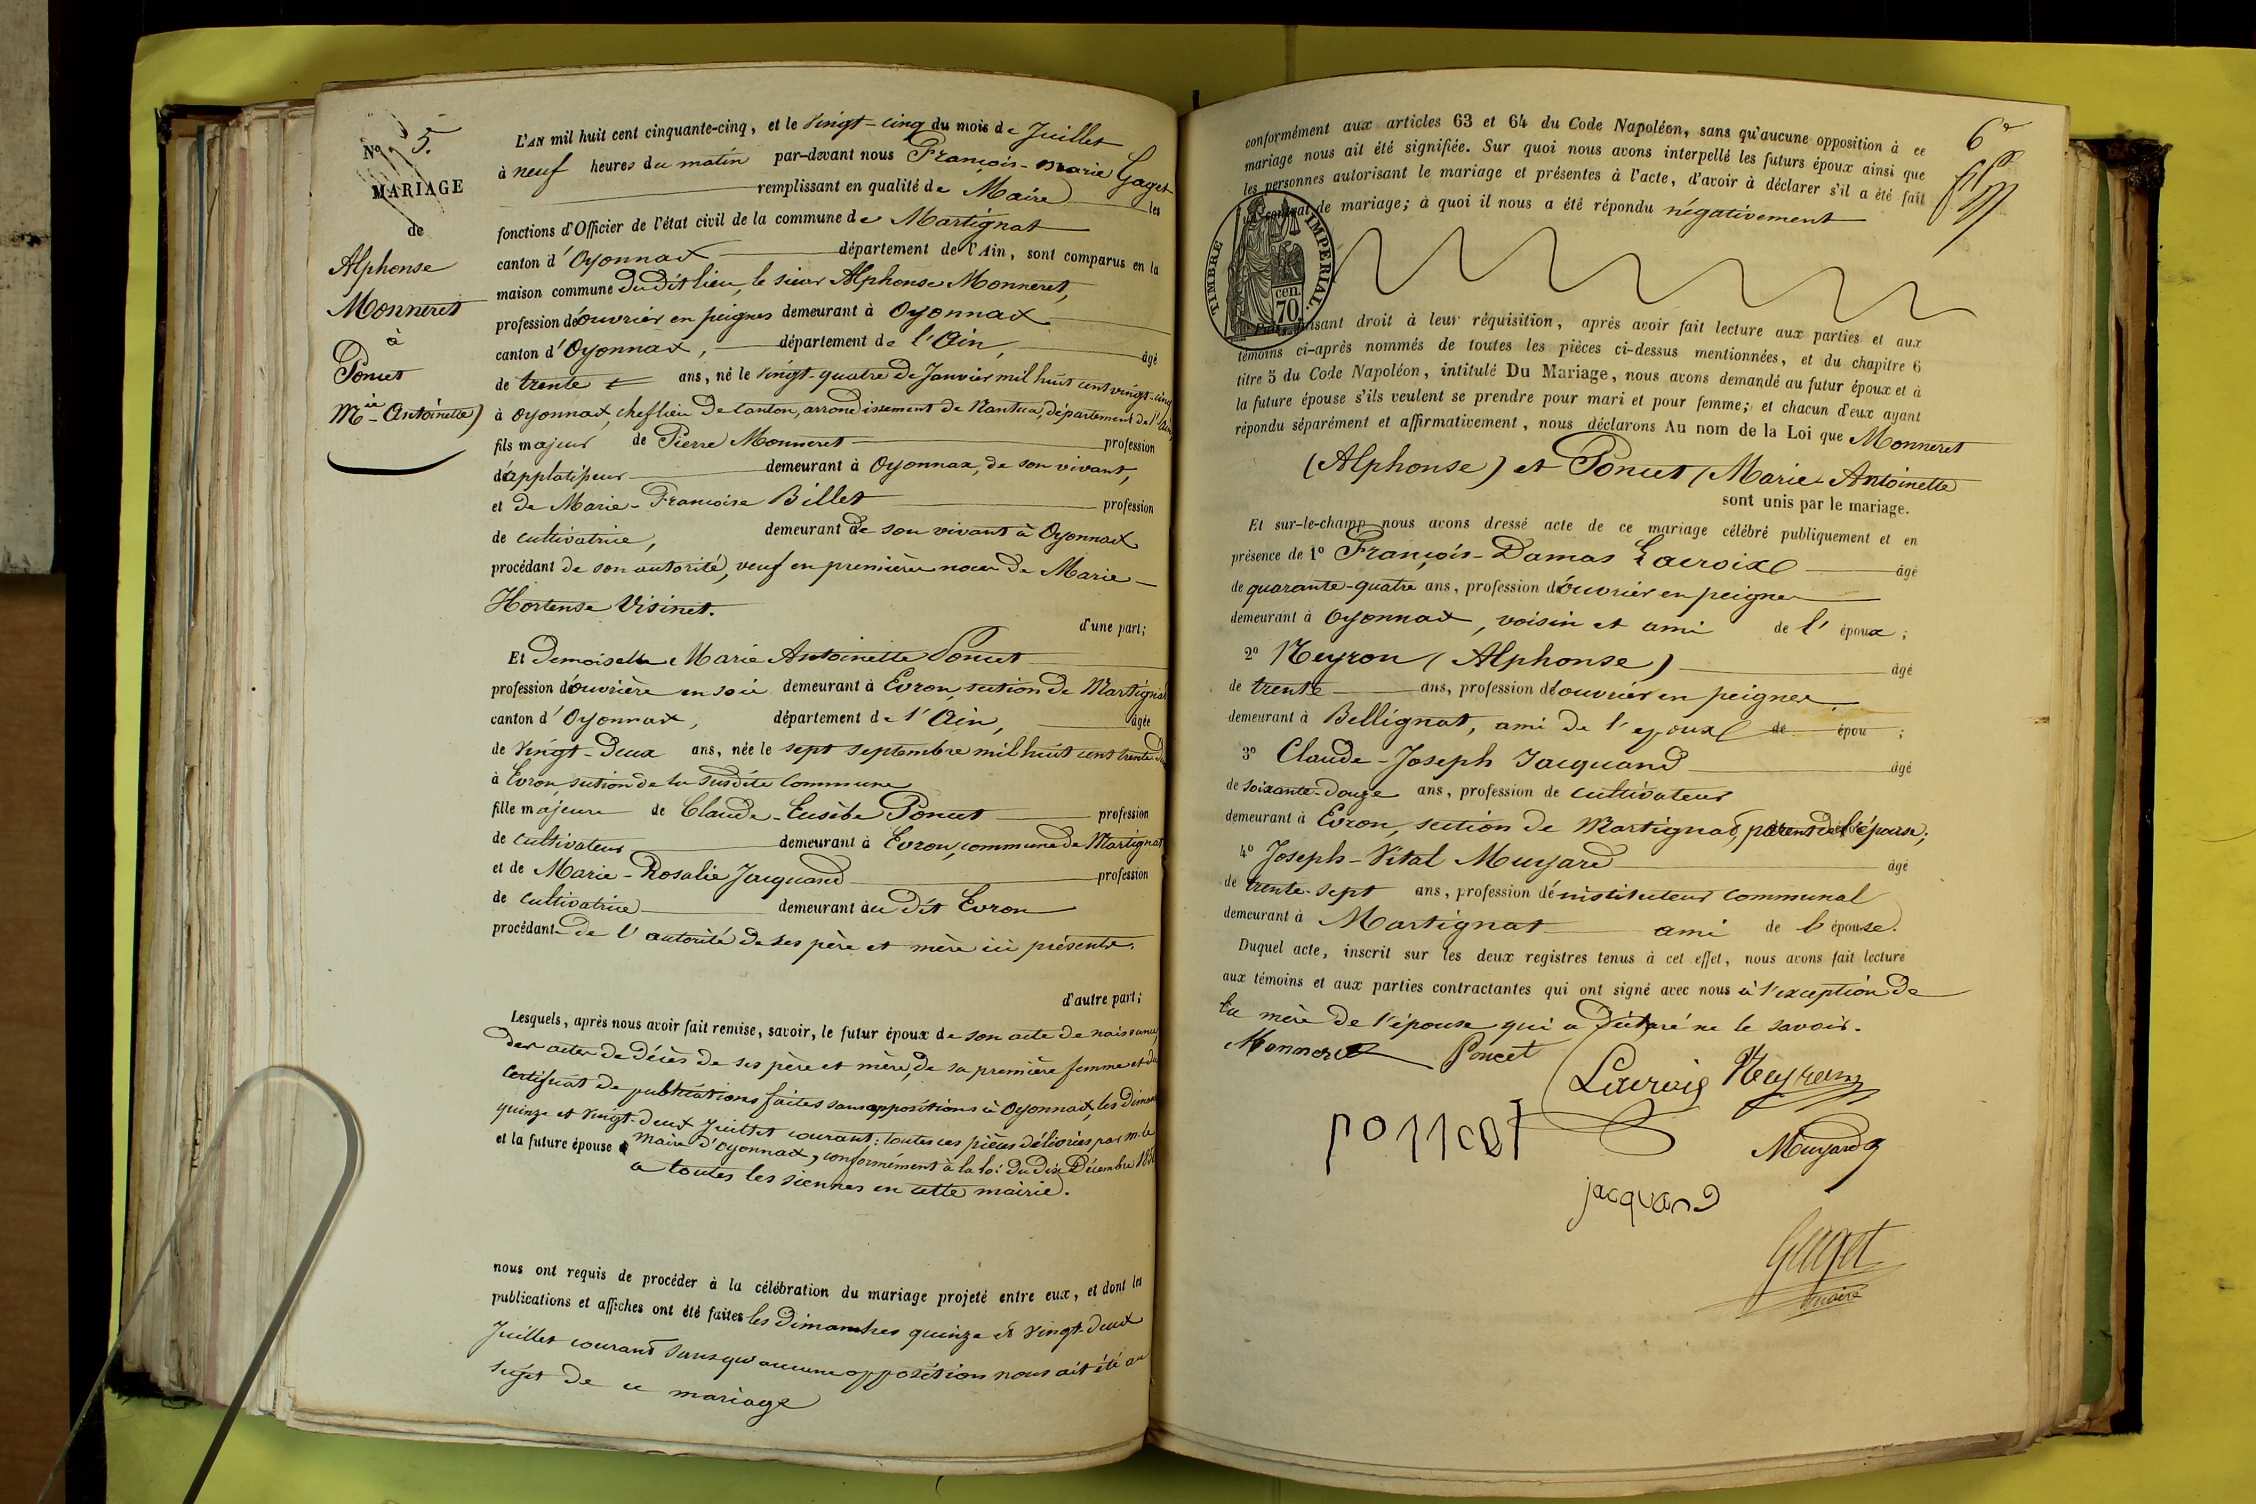 N° 5.
MARIAGE
de
Alphonse
Monneret
à
Poncet
Mie Antoinette)
L'AN mil huit cent cinquante-cinq, et le vingt-cinq du mois de Juillet
à neuf heures du matin par-devant nous François-Marie Gaget
remplissant en qualité de Maire les
fonctions d'Officier de l'état civil de la commune de Martignat
canton d'Oyonnax département de l'Ain, sont comparus en la
maison commune du dit lieu, le sieur Alphonse Monneret,
profession d'ouvrier en peignes demeurant à Oyonnax
canton d'Oyonnax, département de l'Ain, âgé
de trente ans, né le vingt-quatre de Janvier mil huit cent vingt-cinq
à Oyonnax, chef lieu de canton, arrondissement de Nantua, département de l'Ain,
fils majeur de Pierre Monneret profession
d'applatisseur demeurant à Oyonnax, de son vivant,
et de Marie-Françoise Billet profession
de cultivatrice, demeurant de son vivant à Oyonnax
procédant de son autorité, veuf en premières noces de Marie-
Hortense Visinet.
d'une part;
Et demoiselle Marie Antoinette Poncet
profession d'ouvrière en soie demeurant à Evron, section de Martignat
canton d'Oyonnax, département de l'Ain, âgée
de vingt-deux ans, née le sept septembre mil huit cent trente-deux
à Evron, section de la susdite commune
fille majeure de Claude-Eusèbe Poncet profession
de cultivateur demeurant à Evron, commune de Martignat
et de Marie-Rosalie Jacquand profession
de cultivatrice demeurant au dit Evron
procédant de l'autorité de ses père et mère ici présents.
d'autre part;
Lesquels, après nous avoir fait remise, savoir, le futur époux de son acte de naissance,
des actes de décès de ses père et mère, de sa première femme et du
certificat de publications faites sans oppositions à Oyonnax, les dimanches
quinze et vingt-deux Juillet courant: toutes ces pièces délivrées par m. le
maire d'Oyonnax, conformément à la loi du dix Décembre 1850
et la future épouse a toutes les siennes en cette mairie.
nous ont requis de procéder à la célébration du mariage projeté entre eux, et dont les
publications et affiches ont été faites les Dimanches quinze et vingt-deux
Juillet courant sans qu'aucune opposition nous ait été au
sujet de ce mariage
6e
conformément aux articles 63 et 64 du Code Napoléon, sans qu'aucune opposition à ce
mariage nous ait été signifiée. Sur quoi nous avons interpellé les futurs époux ainsi que
les personnes autorisant le mariage et présentes à l'acte, d'avoir à déclarer s'il a été fait
contrat de mariage; à quoi il nous a été répondu négativement
TIMBRE IMPÉRIAL.
70 cen.
faisant droit à leur réquisition, après avoir fait lecture aux parties et aux
témoins ci-après nommés de toutes les pièces ci-dessus mentionnées, et du chapitre 6
titre 5 du Code Napoléon, intitulé Du Mariage, nous avons demandé au futur époux et à
la future épouse s'ils veulent se prendre pour mari et pour femme; et chacun d'eux ayant
répondu séparément et affirmativement, nous déclarons Au nom de la Loi que Monneret
(Alphonse) et Poncet (Marie-Antoinette
sont unis par le mariage.
Et sur-le-champ nous avons dressé acte de ce mariage célébré publiquement et en
présence de 1° François-Damas Lacroix âgé
de quarante-quatre ans, profession d'ouvrier en peignes
demeurant à Oyonnax, voisin et ami de l'époux;
2° Neyron (Alphonse) âgé
de trente ans, profession d'ouvrier en peignes
demeurant à Bellignat, ami de l'époux de épou ;
3° Claude-Joseph Jacquand âgé
de soixante-douze ans, profession de cultivateur
demeurant à Evron, section de Martignat, parent de l'épouse;
4° Joseph-Vital Muyard âgé
de trente-sept ans, profession d'instituteur communal
demeurant à Martignat ami de l'épouse.
Duquel acte, inscrit sur les deux registres tenus à cet effet, nous avons fait lecture
aux témoins et aux parties contractantes qui ont signé avec nous à l'exception de
la mère de l'épouse qui a déclaré ne le savoir.
Monneret Poncet Lacroix Neyron
poncet
Muyard
jacquand
Gaget
maire